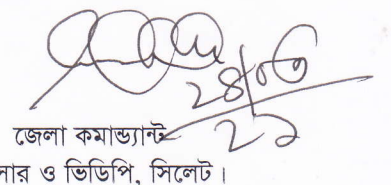 ২৪/০৩
২১
জেলা কমান্ড্যান্ট
নার ও ভিডিপি, সিলেট।